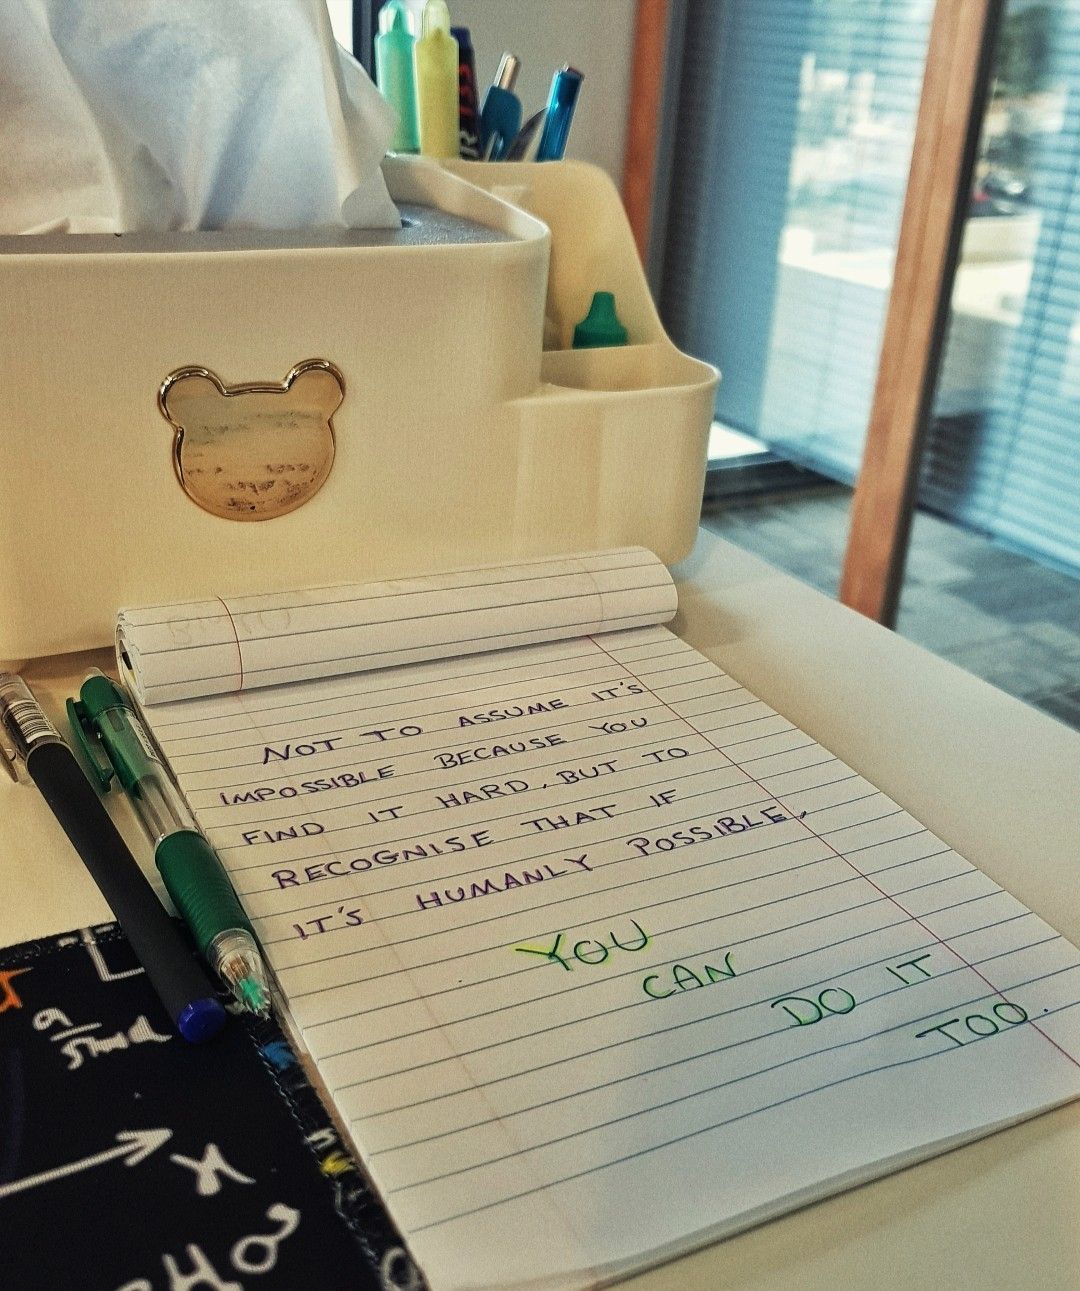 NOT TO ASSUME IT'S
IMPOSSIBLE BECAUSE YOU
FIND IT HARD, BUT TO
RECOGNISE THAT IF
IT'S HUMANLY POSSIBLE,
YOU
CAN
DO IT
TOO.